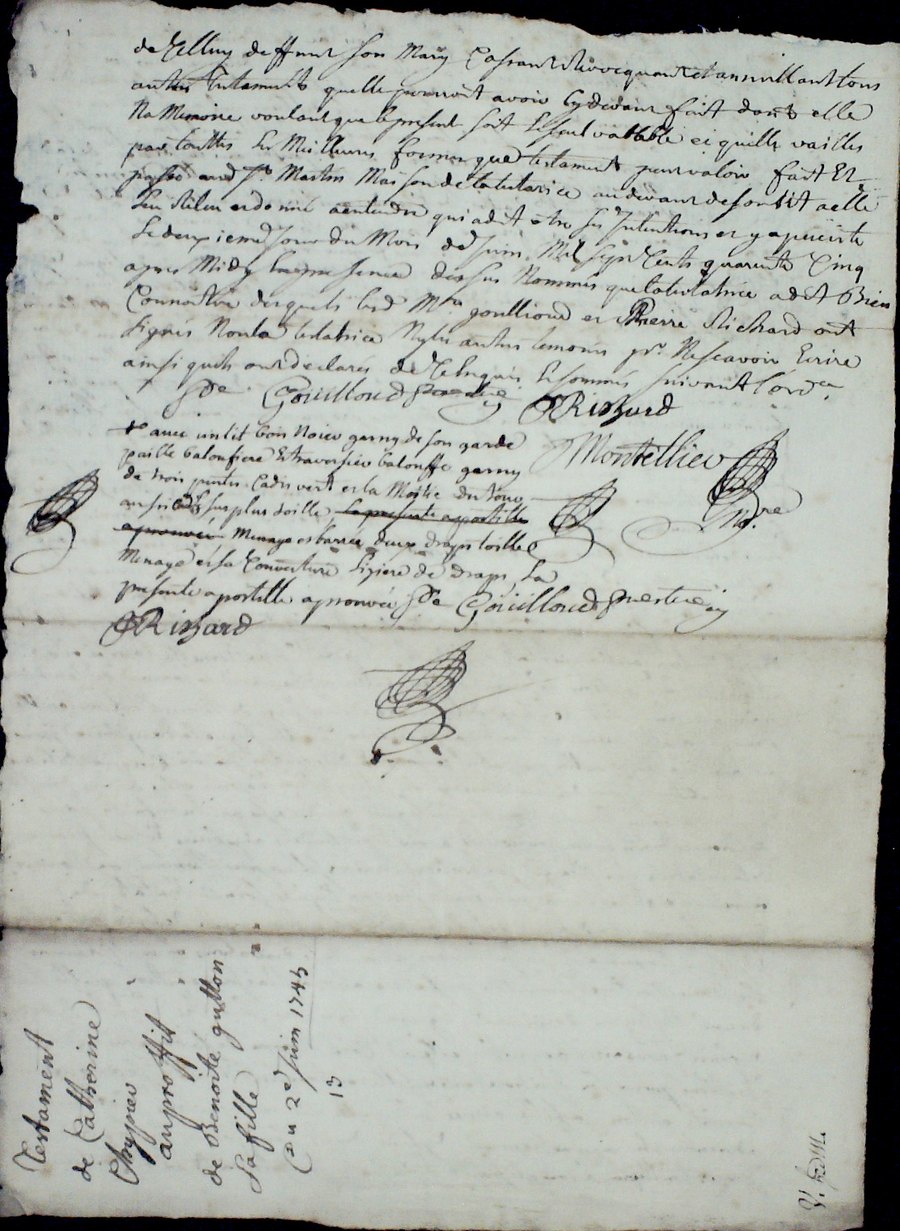 de deffunt son Mary Cassant Revocquant et annullant tous
autres testaments quelle pourroit avoir Cydevant fait dont elle
Na Memoire voulant que le present soit le seul vallable et quille vaille
par touttes Les Meilleures formes que testament peut valoir fait Et
passé aud St Martin Maison de la testatrice audevant de son lit a elle
Leu Releu et donné a entendre qui a dit etre ses Intentions et y a persisté
Le deuxieme Jour du Mois de Juin Mil Sept Cents quarante Cinq
apres Midy En presence des sus Nommés que la testatrice a dit Bien
Connoitre desquels led Mre gouilloud et Pierre Richard ont
signés Non la testatrice Ny les autres temoins pr Ne scavoir Ecrire
ainsi quils ont declarés de ce Enquis Et sommés suivant l'ordce
Sde Gouilloud
PRichard
Montellier
Nore
+ avec un lit bois Noier garny de son garde
paille balouffiere et traversier balouffe garny
de trois pantes Cadis vert et la Moitié du tour
aussi Cadis plus toille la presente apostille
aprouvée Menage et barré deux draps toille
Menage et la Couverture Ligiere de draps La
presente apostille aprouvée Sde Gouilloud
PRichard
Testament
de Catherine
Chypier
au proffit
de Benoite gutton
sa fille
Du 2e Juin 1745
13